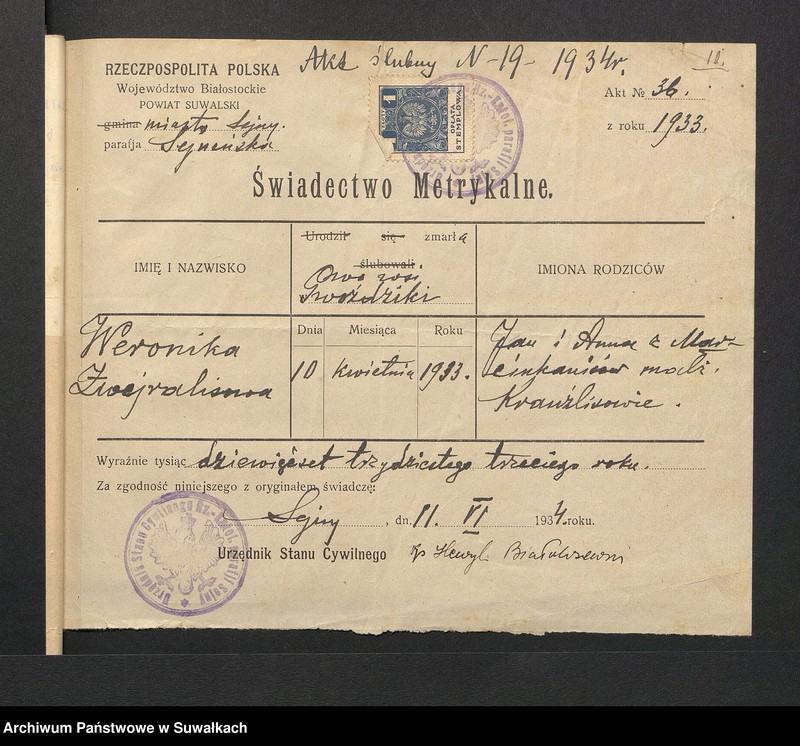 Akt ślubny N-19- 1934r.
10.
RZECZPOSPOLITA POLSKA
Województwo Białostockie
POWIAT SUWALSKI
gmina miasto Sejny.
parafja Sejneńska
1
OPŁATA
STEMPLOWA
Akt № 36.
z roku 1933.
Świadectwo Metrykalne.
IMIĘ I NAZWISKO
Urodził się zmarła
ślubowali
IMIONA RODZICÓW
Weronika
Dnia Miesiąca Roku
10 kwietnia 1933.
Jan i Anna z Mar-
cinkaniców małż.
Wyraźnie tysiąc dziewięćset trzydziestego trzeciego roku.
Za zgodność niniejszego z oryginałem świadczę:
Sejny, dn. 11. VI 1934. roku.
Urzędnik Stanu Cywilnego Ks Henryk
Urzędnik Stanu Cywilnego Rz.-Katol. parafji Sejny
Archiwum Państwowe w Suwałkach